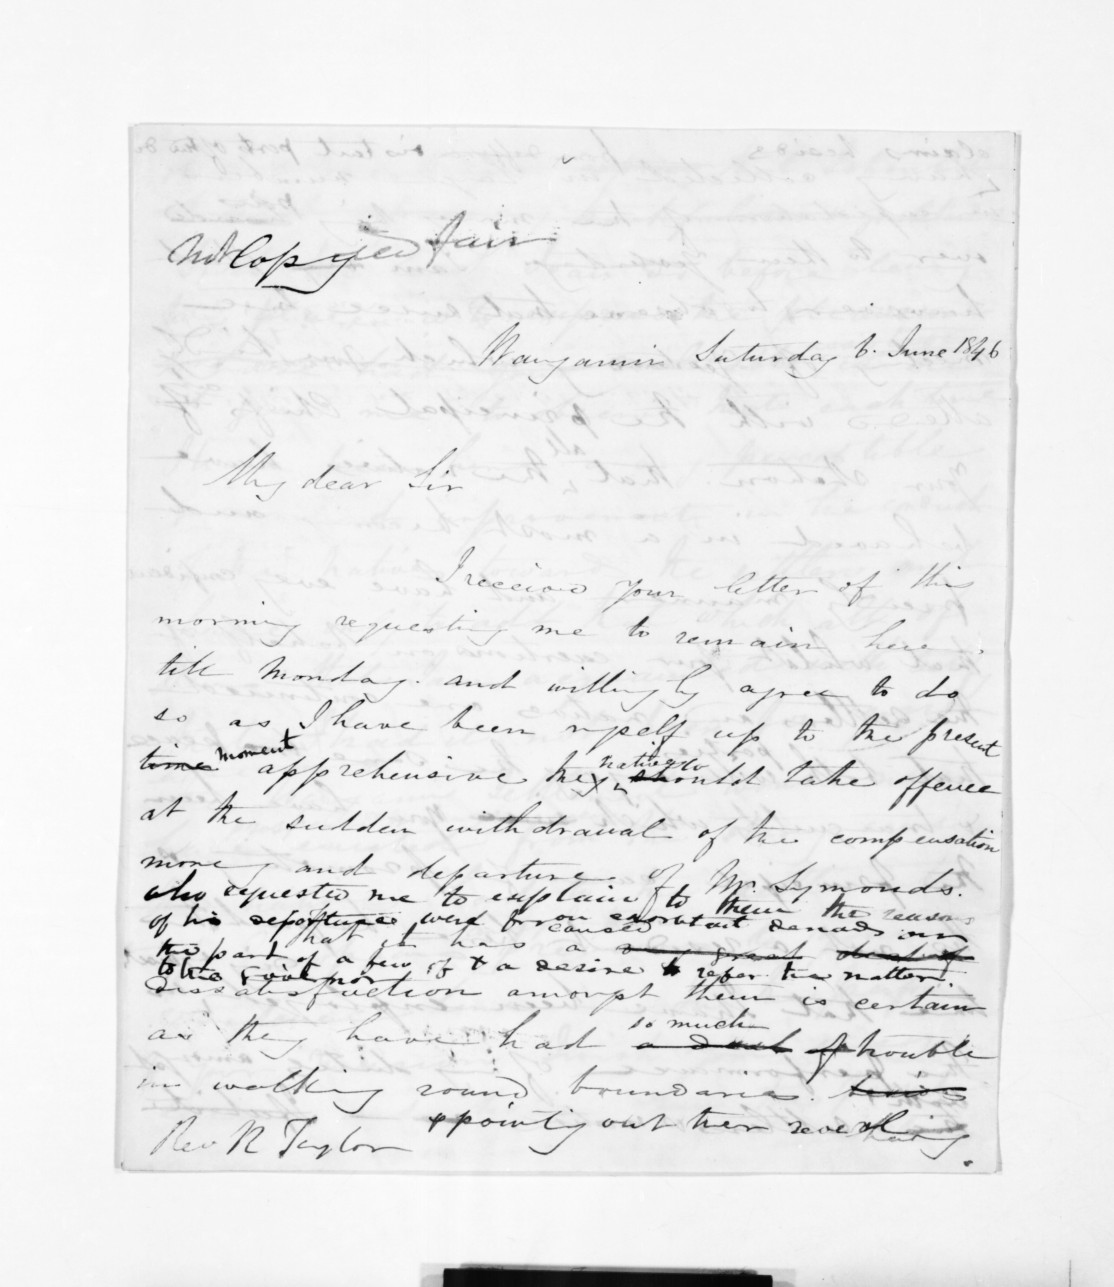 Not Copyied fair
Wanganui Saturday 6. June 1846
My dear Sir
I received your letter of this
morning requesting me to remain here
till Monday. and willingly agree to do
so as I have been myself up to the present
time moment apprehensive the natives to should take offence
at the sudden withdrawal of the compensation
money and departure of Mr. Symonds.
who requested me to explain to them the reasons
of his departure were from exorbitant demands on
the part of a few of & a desire to refer the matter
to the Governor
That it has caused a very great deal of
dissatisfaction amongst them is certain
as they have had so much a deal of trouble
in walking round boundaries
& pointing out their several
Rev R Taylor